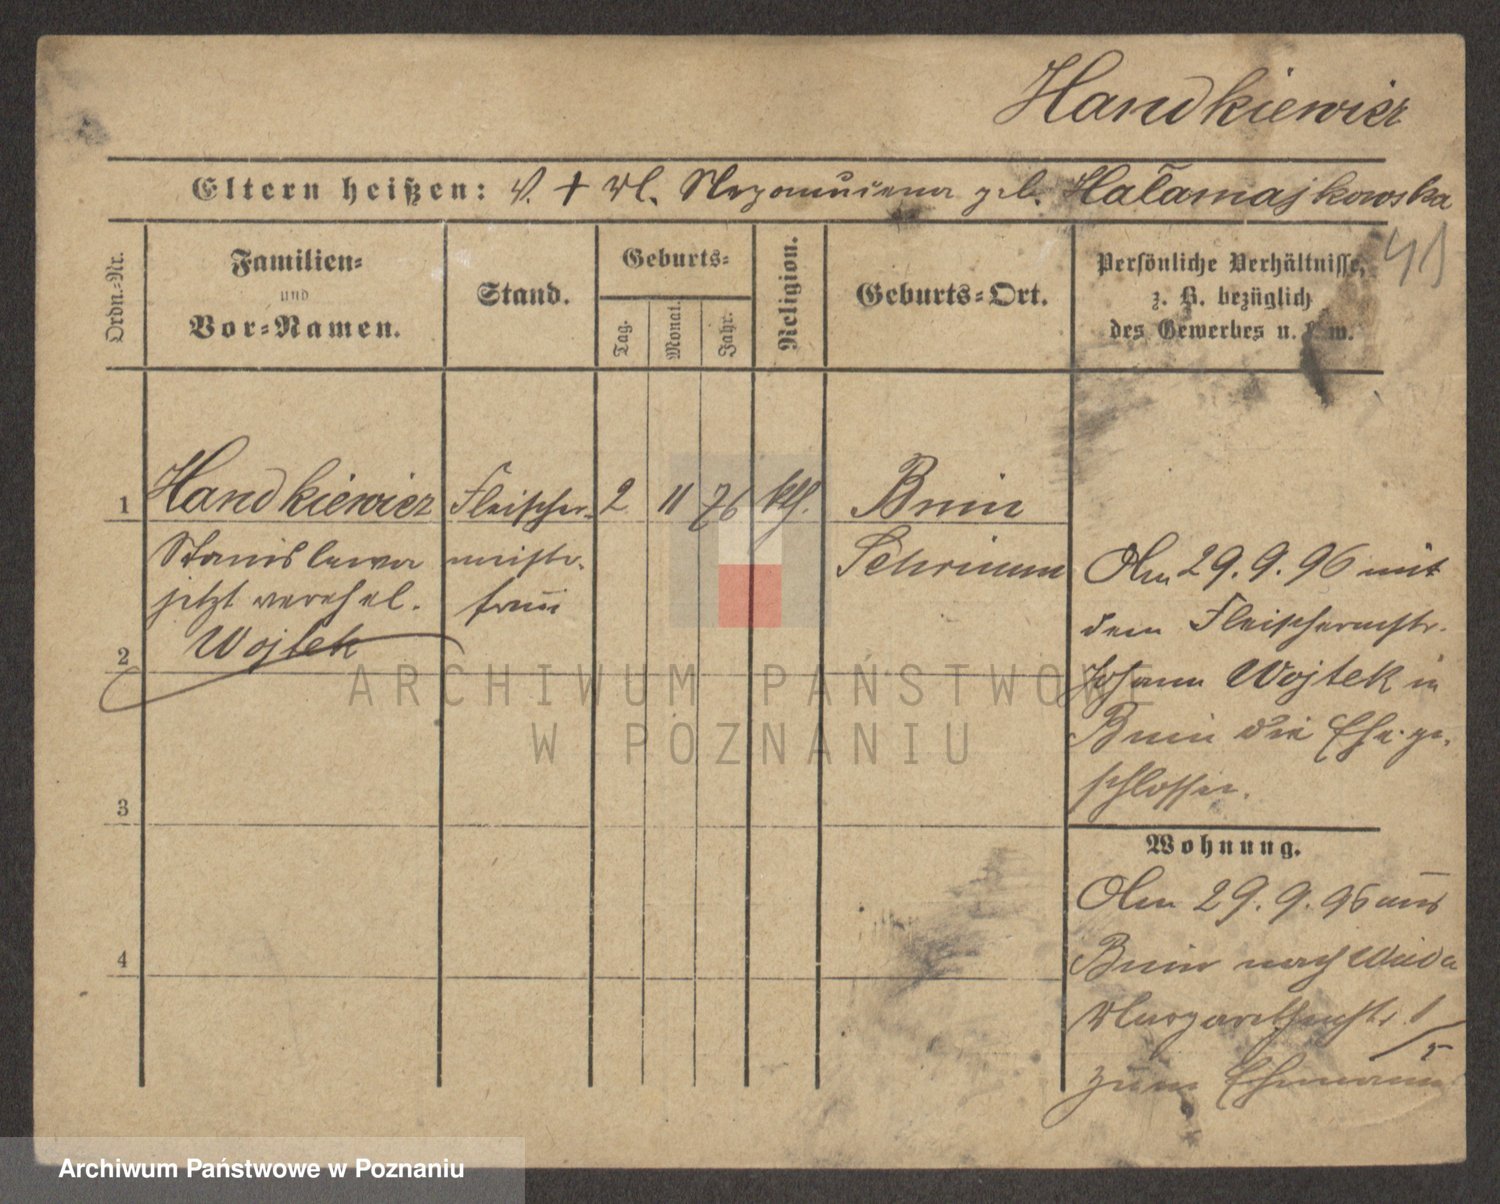 Handkiewicz
Eltern heißen: V. + M. Nepomucena geb. Hałamajkowska
Ordn.-Nr.
Familien-
und
Vor-Namen.
Stand.
Geburts-
Tag.
Monat.
Jahr.
Religion.
Geburts-Ort.
Persönliche Verhältnisse,
z. B. bezüglich
des Gewerbes u. s. w.
1
Handkiewicz
Stanislawa
jetzt verehel.
Wojtek
Fleischer-
meistr.
frau
2
11
76
kth.
Bnin
Schrimm
Am 29. 9. 96 mit
dem Fleischermstr.
Johann Wojtek in
Bnin die Ehe ge-
schlossen.
2
3
4
Wohnung.
Am 29. 9. 96 aus
Bnin nach Wilda
Margarethenstr. 1
zum Ehemann
ARCHIWUM PAŃSTWOWE
W POZNANIU
Archiwum Państwowe w Poznaniu